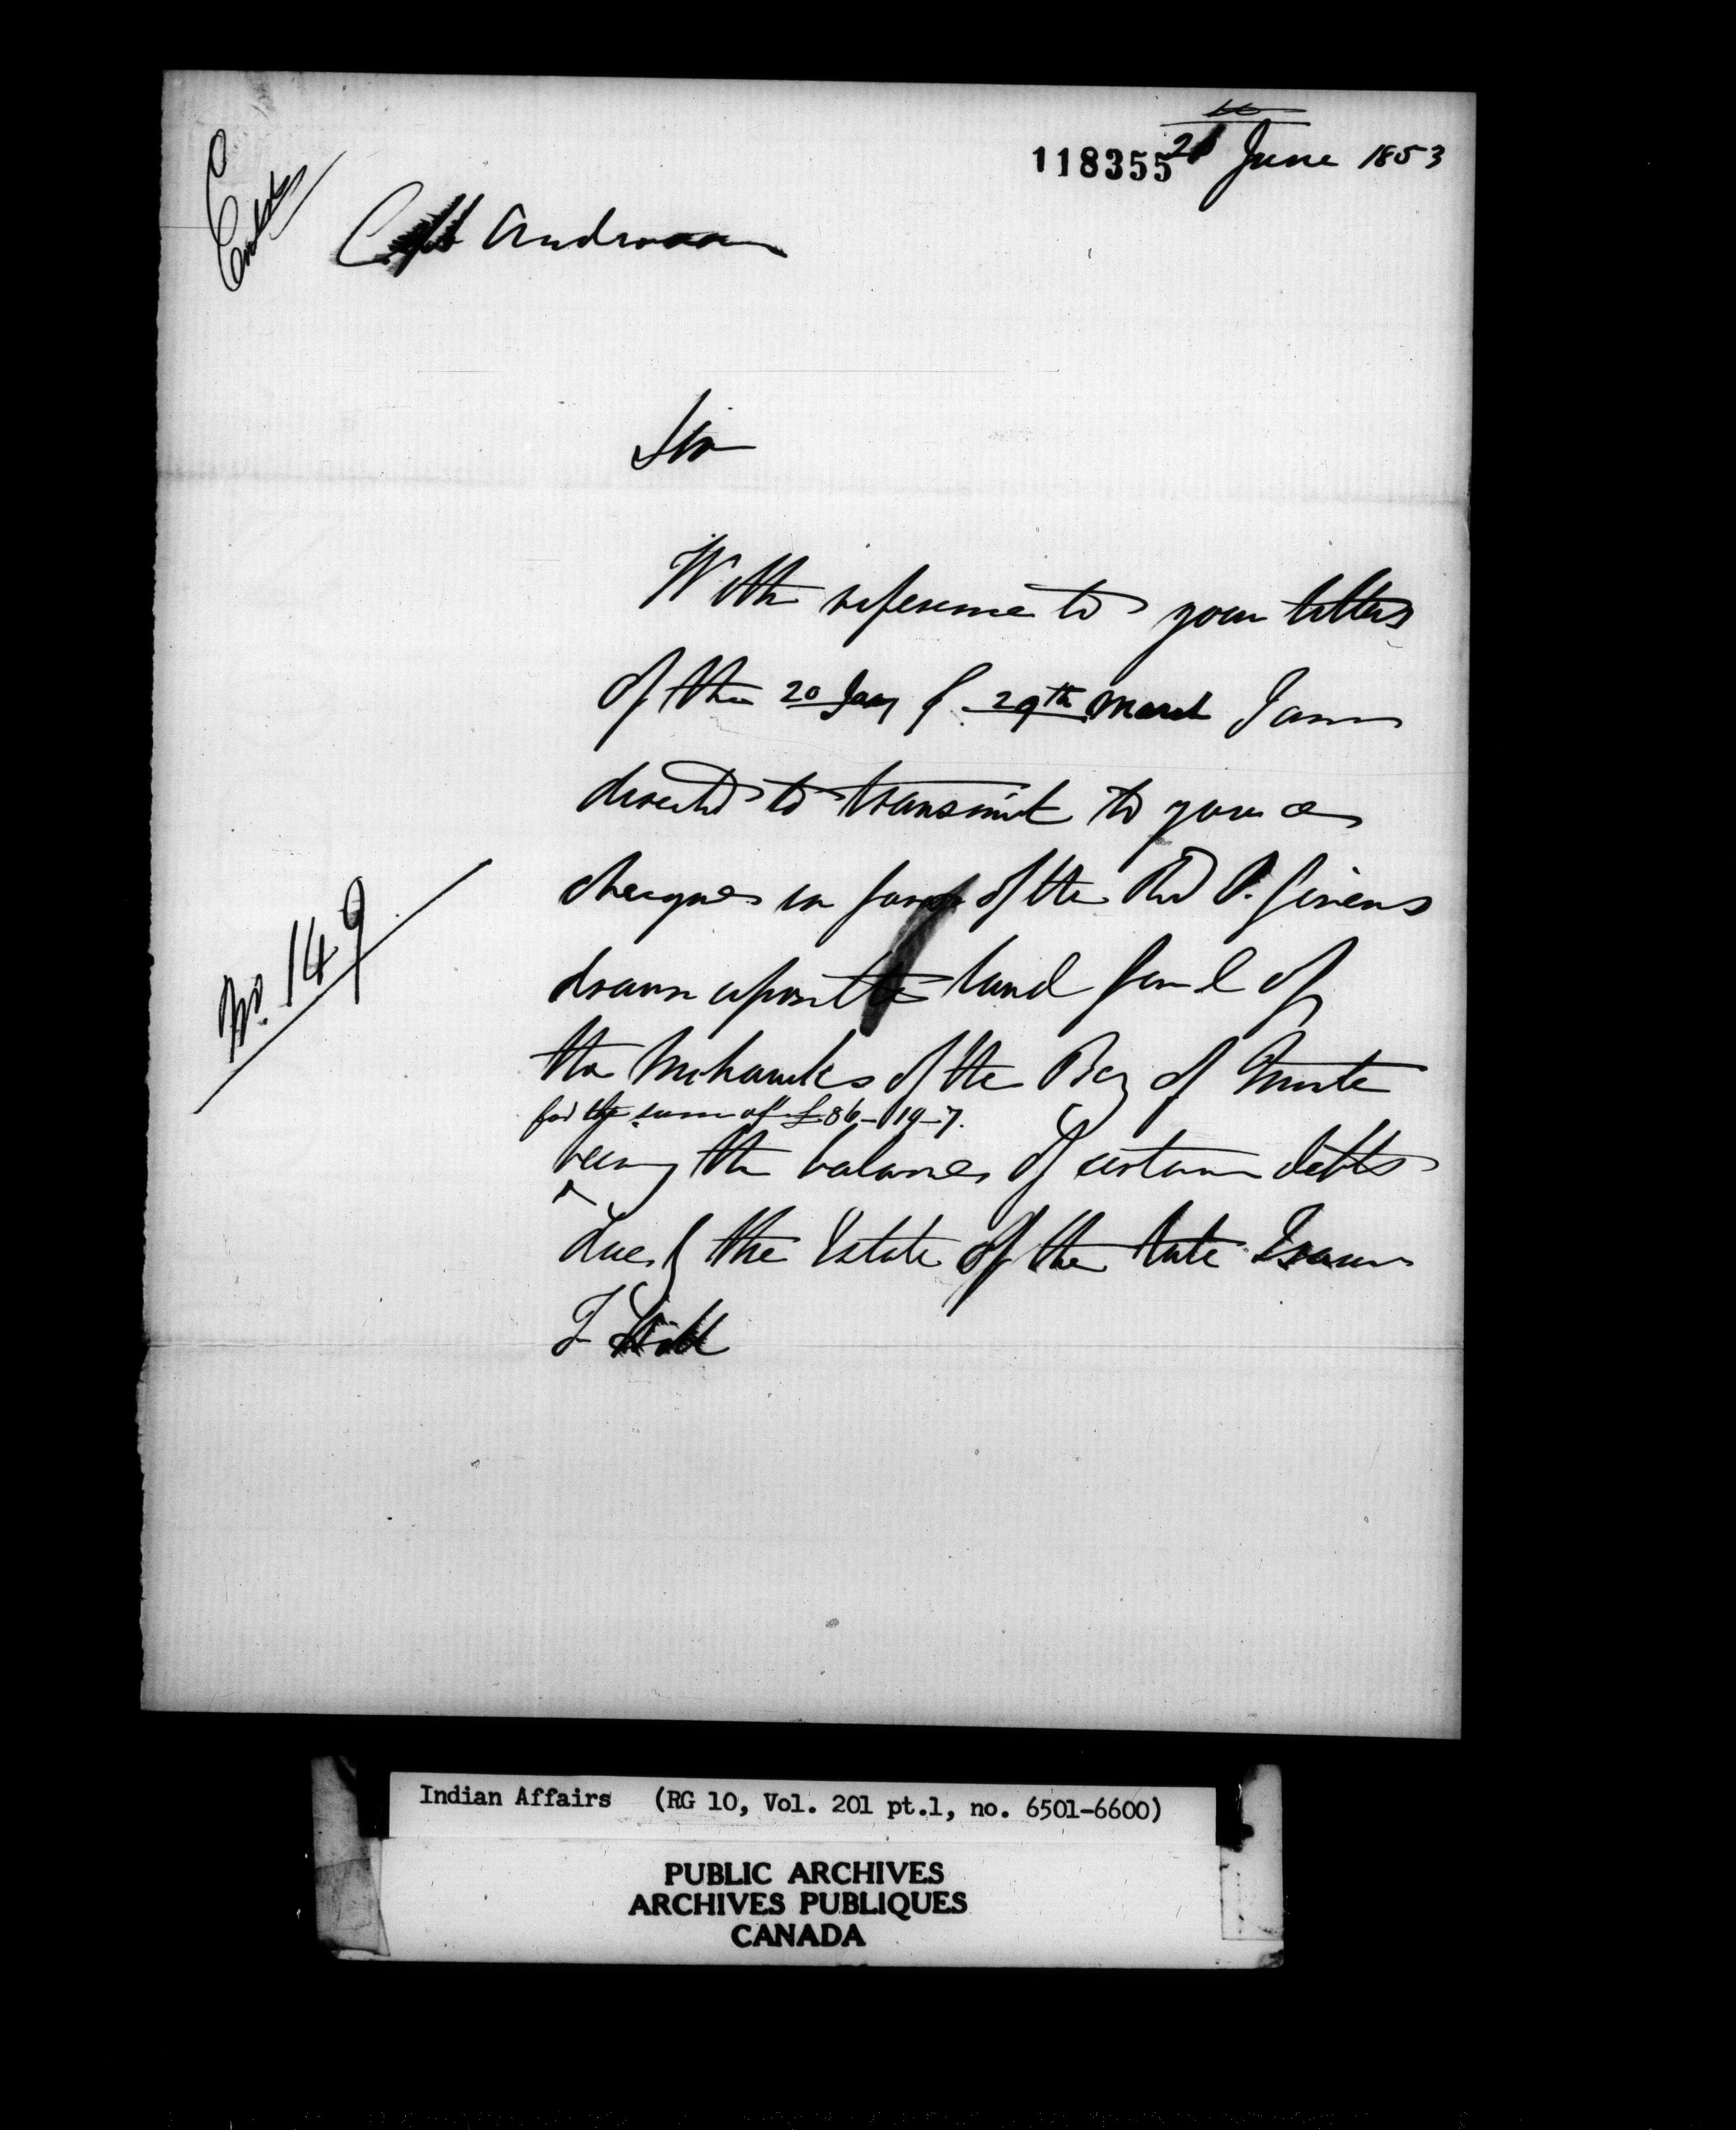 118355
21 June 1853
Capt Anderson
Sir
With reference to your letters
of the 20 Jany & 29th March I am
directed to transmit to you a
cheque in favor of the Revd S. Givens
drawn upon the land fund of
the Mohawks of the Bay of Quinte
for the sum of £86-19-7.
being the balance of certain debts
due by the Estate of the late Isaac
No. 149
Indian Affairs (RG 10, Vol. 201 pt.1, no. 6501-6600)
PUBLIC ARCHIVES
ARCHIVES PUBLIQUES
CANADA